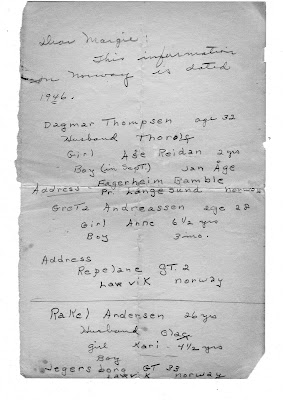 Dear Margie:
This information
on Norway is dated
1946.
Dagmar Thompsen age 32
Husband Thorolf
Girl Åse Reidan 2 yrs
Boy (in Sept) Jan Åge
Fagerheim Bamble
Address - Pr. Langesund norway
Grota Andreassen age 28
Girl Anne 6 1/2 yrs
Boy 3 mo.
Address
Repelane GT. 2
Larvik norway
Rakel Andensen 26 yrs
Husband Olag
girl Kari - 4 1/2 yrs
Boy
Jegersborg GT 33
Larvik norway